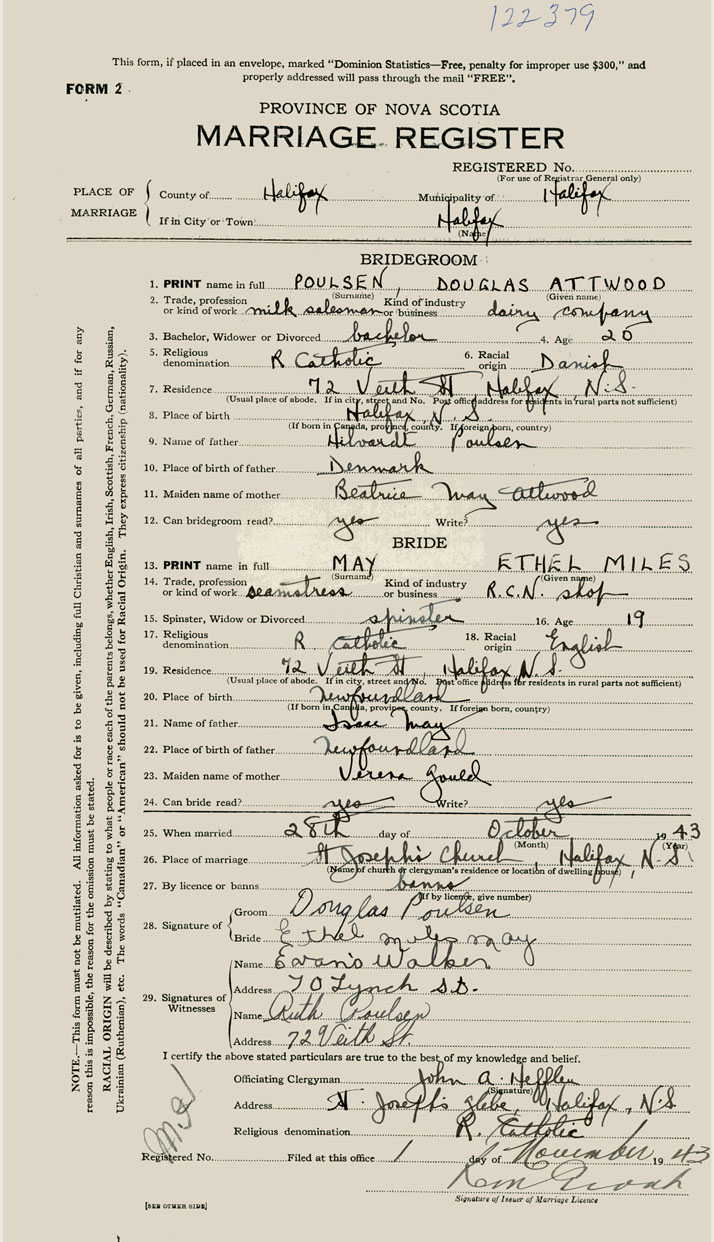 122379
This form, if placed in an envelope, marked "Dominion Statistics—Free, penalty for improper use $300," and
properly addressed will pass through the mail "FREE".
FORM 2
PROVINCE OF NOVA SCOTIA
MARRIAGE REGISTER
REGISTERED No.
(For use of Registrar General only)
PLACE OF MARRIAGE
County of Halifax Municipality of Halifax
If in City or Town Halifax
(Name)
BRIDEGROOM
1. PRINT name in full POULSEN, DOUGLAS ATTWOOD
(Surname) (Given name)
2. Trade, profession or kind of work milk salesman Kind of industry or business dairy company
3. Bachelor, Widower or Divorced bachelor 4. Age 20
5. Religious denomination R Catholic 6. Racial origin Danish
7. Residence 72 Veith St Halifax, N.S.
(Usual place of abode. If in city, street and No. Post office address for residents in rural parts not sufficient)
8. Place of birth Halifax, N.S.
(If born in Canada, province, county. If foreign born, country)
9. Name of father Hilvardt Poulsen
10. Place of birth of father Denmark
11. Maiden name of mother Beatrice May Attwood
12. Can bridegroom read? yes Write? yes
BRIDE
13. PRINT name in full MAY ETHEL MILES
(Surname) (Given name)
14. Trade, profession or kind of work seamstress Kind of industry or business R.C.N. shop
15. Spinster, Widow or Divorced spinster 16. Age 19
17. Religious denomination R. Catholic 18. Racial origin English
19. Residence 72 Veith St, Halifax, N.S.
(Usual place of abode. If in city, street and No. Post office address for residents in rural parts not sufficient)
20. Place of birth Newfoundland
(If born in Canada, province, county. If foreign born, country)
21. Name of father Isaac May
22. Place of birth of father Newfoundland
23. Maiden name of mother Verena Gould
24. Can bride read? yes Write? yes
25. When married 28th day of October 1943
(Month) (Year)
26. Place of marriage St Joseph's Church, Halifax, N.S.
(Name of church or clergyman's residence or location of dwelling house)
27. By licence or banns banns
(If by licence, give number)
28. Signature of
Groom Douglas Poulsen
Bride Ethel miles may
29. Signatures of Witnesses
Name Evans Walker
Address 70 Lynch St.
Name Ruth Poulsen
Address 72 Veith St.
I certify the above stated particulars are true to the best of my knowledge and belief.
Officiating Clergyman John A. Hefflen
(Signature)
Address St. Joseph's glebe, Halifax, N.S
Religious denomination R. Catholic
Registered No. Filed at this office 1 day of November 1943
Signature of Issuer of Marriage Licence
[SEE OTHER SIDE]
NOTE.—This form must not be mutilated. All information asked for is to be given, including full Christian and surnames of all parties, and if for any
reason this is impossible, the reason for the omission must be stated.
RACIAL ORIGIN will be described by stating to what people or race each of the parents belongs, whether English, Irish, Scottish, French, German, Russian,
Ukrainian (Ruthenian), etc. The words "Canadian" or "American" should not be used for Racial Origin. They express citizenship (nationality).